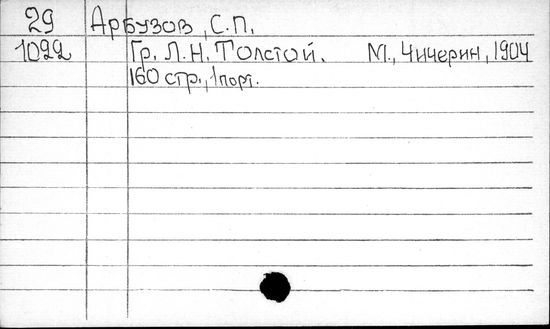 29 Арбузов, С.П.
1092 Гр. Л.Н. Толстой. М., Чичерин, 1904
160 стр., 1 порт.